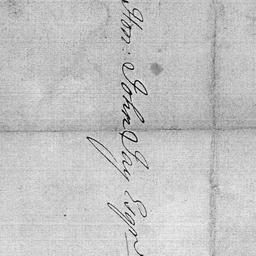 Hon: John Jay Esqr